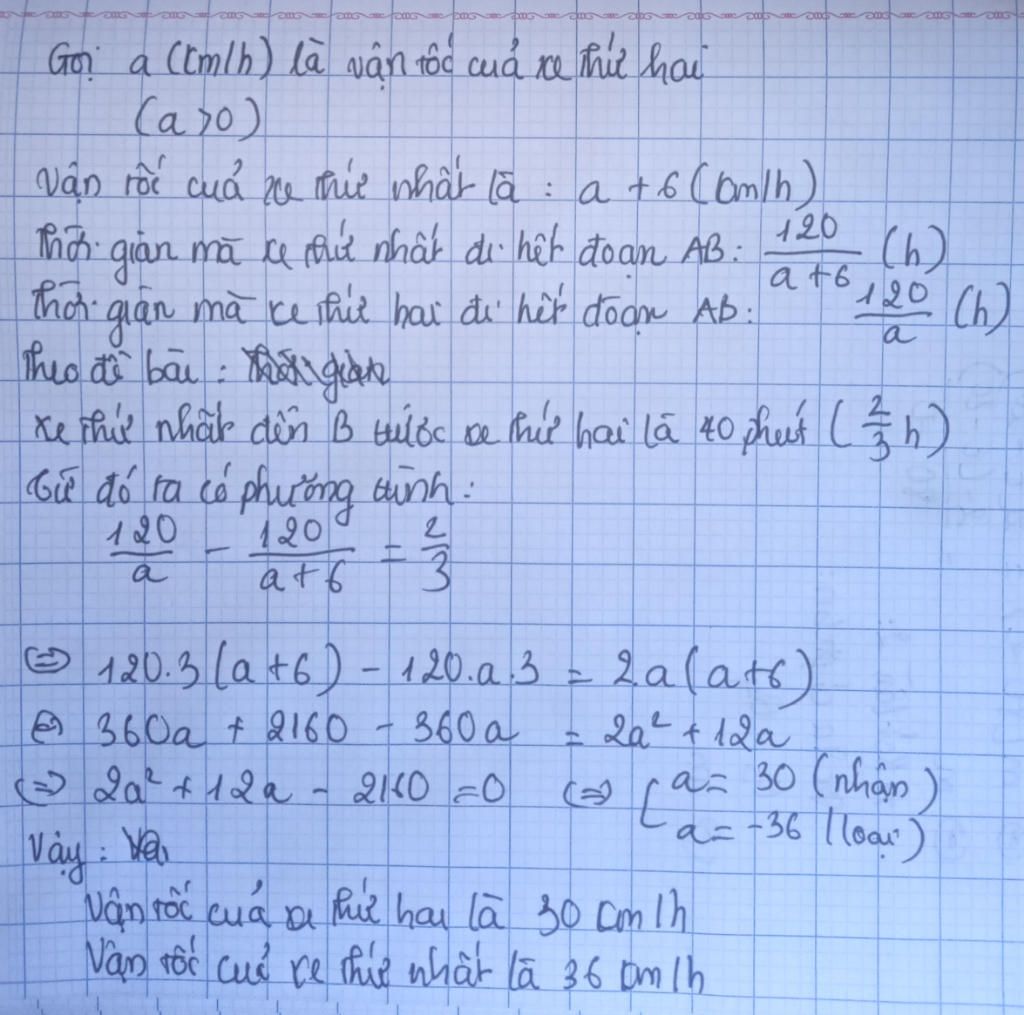 Gọi a (km/h) là vận tốc của xe thứ hai
(a>0)
Vận tốc của xe thứ nhất là : a + 6 (km/h)
Thời gian mà xe thứ nhất đi hết đoạn AB: 120/(a+6) (h)
Thời gian mà xe thứ hai đi hết đoạn AB: 120/a (h)
Theo đề bài : Thời gian
xe thứ nhất đến B trước xe thứ hai là 40 phút (2/3 h)
Từ đó ta có phương trình:
120/a - 120/(a+6) = 2/3
⇔ 120.3(a+6) - 120.a.3 = 2a(a+6)
⇔ 360a + 2160 - 360a = 2a² + 12a
⇔ 2a² + 12a - 2160 = 0 ⇔ [ a = 30 (nhận)
a = -36 (loại)
Vậy :
Vận tốc của xe thứ hai là 30 km/h
Vận tốc của xe thứ nhất là 36 km/h